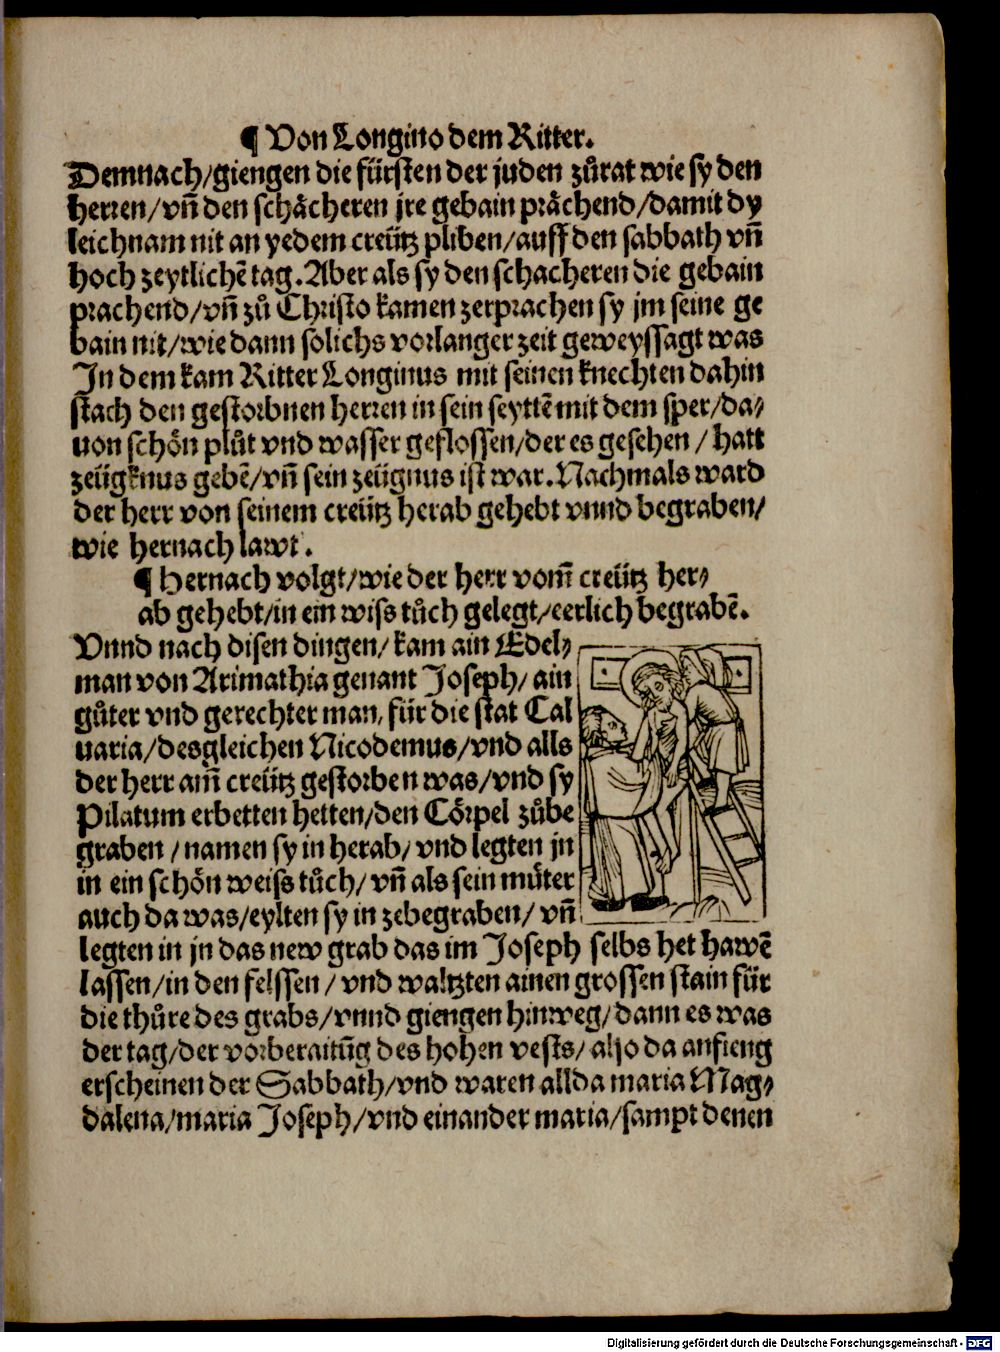 ¶ Von Longino dem Ritter.
Demnach/giengen die fürsten der juden zůrat wie sy den
herren/vñ den schächeren jre gebain prächend/damit dy
leichnam nit an yedem creütz pliben/auff den sabbath vñ
hoch zeytlichẽ tag. Aber als sy den schacheren die gebain
prachend/vñ zů Christo kamen zerprachen sy jm seine ge
bain nit/wie dann solichs vorlanger zeit geweyssagt was
In dem kam Ritter Longinus mit seinen knechten dahin
stach den gestorbnen herren in sein seyttẽ mit dem sper/da⸗
uon schön plůt vnd wasser geflossen/der es gesehen / hatt
zeügknus gebẽ/vñ sein zeügnus ist war. Nachmals ward
der herr von seinem creütz herab gehebt vnnd begraben/
wie hernach lawt.
¶ Hernach volgt/wie der herr vom̃ creütz her⸗
ab gehebt/in ein wiss tůch gelegt/eerlich begrabẽ.
Vnnd nach disen dingen/ kam ain Edel⸗
man von Arimathia genant Joseph/ ain
gůter vnd gerechter man, für die stat Cal
uaria/desgleichen Nicodemus/vnd alls
der herr am̃ creütz gestorben was/vnd sy
Pilatum erbetten hetten/den Cörpel zůbe
graben / namen sy in herab/ vnd legten jn
in ein schön weiss tůch/ vñ als sein můter
auch da was/eylten sy in zebegraben/ vñ
legten in jn das new grab das im Joseph selbs het hawẽ
lassen/in den felssen / vnd waltzten ainen grossen stain für
die thůre des grabs/vnnd giengen hinweg/dann es was
der tag/der vorberaitũg des hohen vests/ also da anfieng
erscheinen der Sabbath/vnd waren allda maria Mag⸗
dalena/maria Joseph/vnd einander maria/sampt denen
Digitalisierung gefördert durch die Deutsche Forschungsgemeinschaft - DFG